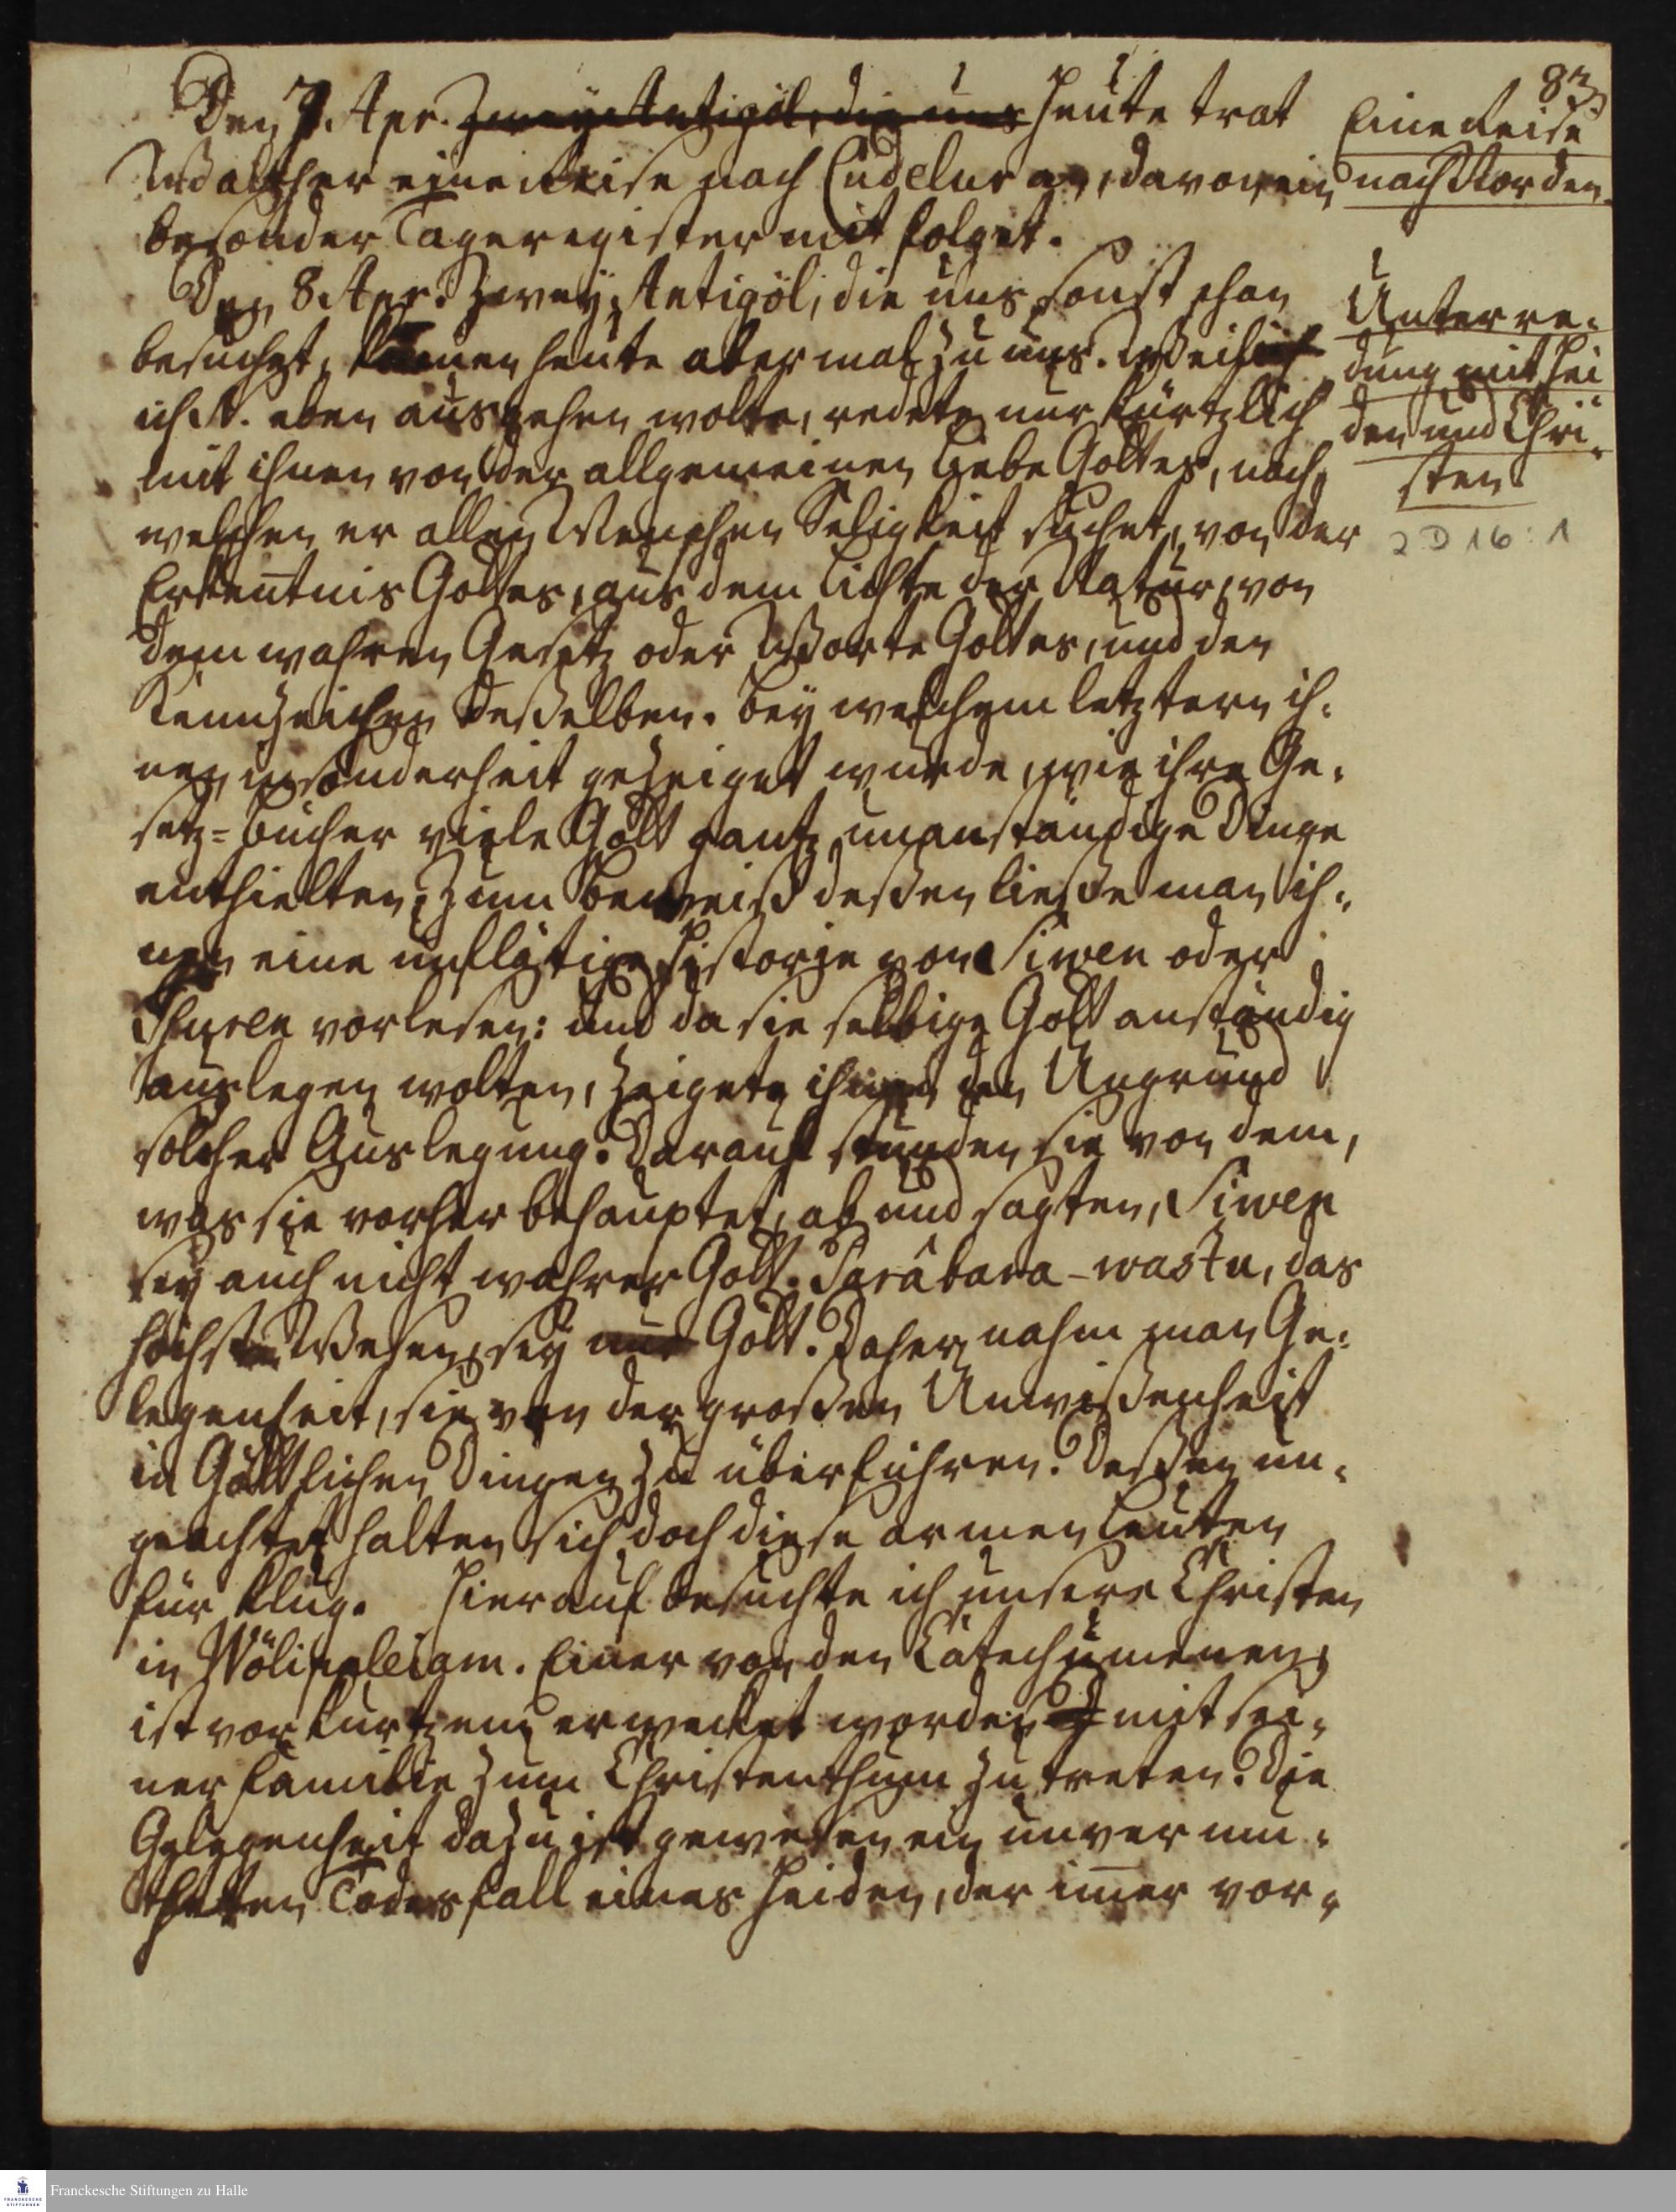 83
Den 7. Apr. Zwey Antigöl, die uns heute trat
Walther eine Reise nach Cudelur an, davon ein
besonder Tageregister mit folget.
Eine Reise
nach Norden.
Den 8. Apr. Zwey Antigöl, die uns sonst schon
besuchet, kamen heute abermal zu uns. Weil
ich N. eben ausgehen wolte, redete nur kürtzlich
mit ihnen von der allgemeinen Liebe Gottes, nach
welcher er aller Menschen Seligkeit suchet, von der
Erkentnis Gottes, aus dem Lichte der Natur, von
dem wahren Gesetz oder Worte Gottes, und den
Kennzeichen deßelben. Bey welchem letztern ih-
nen insonderheit gezeiget wurde, wie ihre Ge-
setz-Bücher viele Gott gantz unanständige Dinge
enthielten; Zum Beweiß deßen ließe man ih-
nen eine unflätige Historie von Siwen oder
Ißuren vorlesen: und da sie selbige Gott anständig
auslegen wolten, zeigete ihnen den Ungrund
solcher Auslegung. Darauf stunden sie von dem,
was sie vorher behauptet, ab und sagten, Siwen
sey auch nicht wahrer Gott. Parâbara-wastu, das
höchste Wesen, sey nur Gott. Daher nahm man Ge-
legenheit, sie von der großen Unwißenheit
in Göttlichen Dingen zu überführen. Deßen un-
geachtet halten sich doch diese armen Leuten
für klug. Hierauf besuchte ich unsere Christen
in Wölipaleiam. Einer von den Catechumenen
ist vor kurtzem erwecket worden mit sei-
ner Familie zum Christenthum zu treten. Die
Gelegenheit dazu ist gewesen ein unvermu-
theten Todesfall eines Heiden, der im̄er vor-
Unterre-
dung mit Hei
den und Chri-
sten
2 D 16 : 1
Franckesche Stiftungen zu Halle